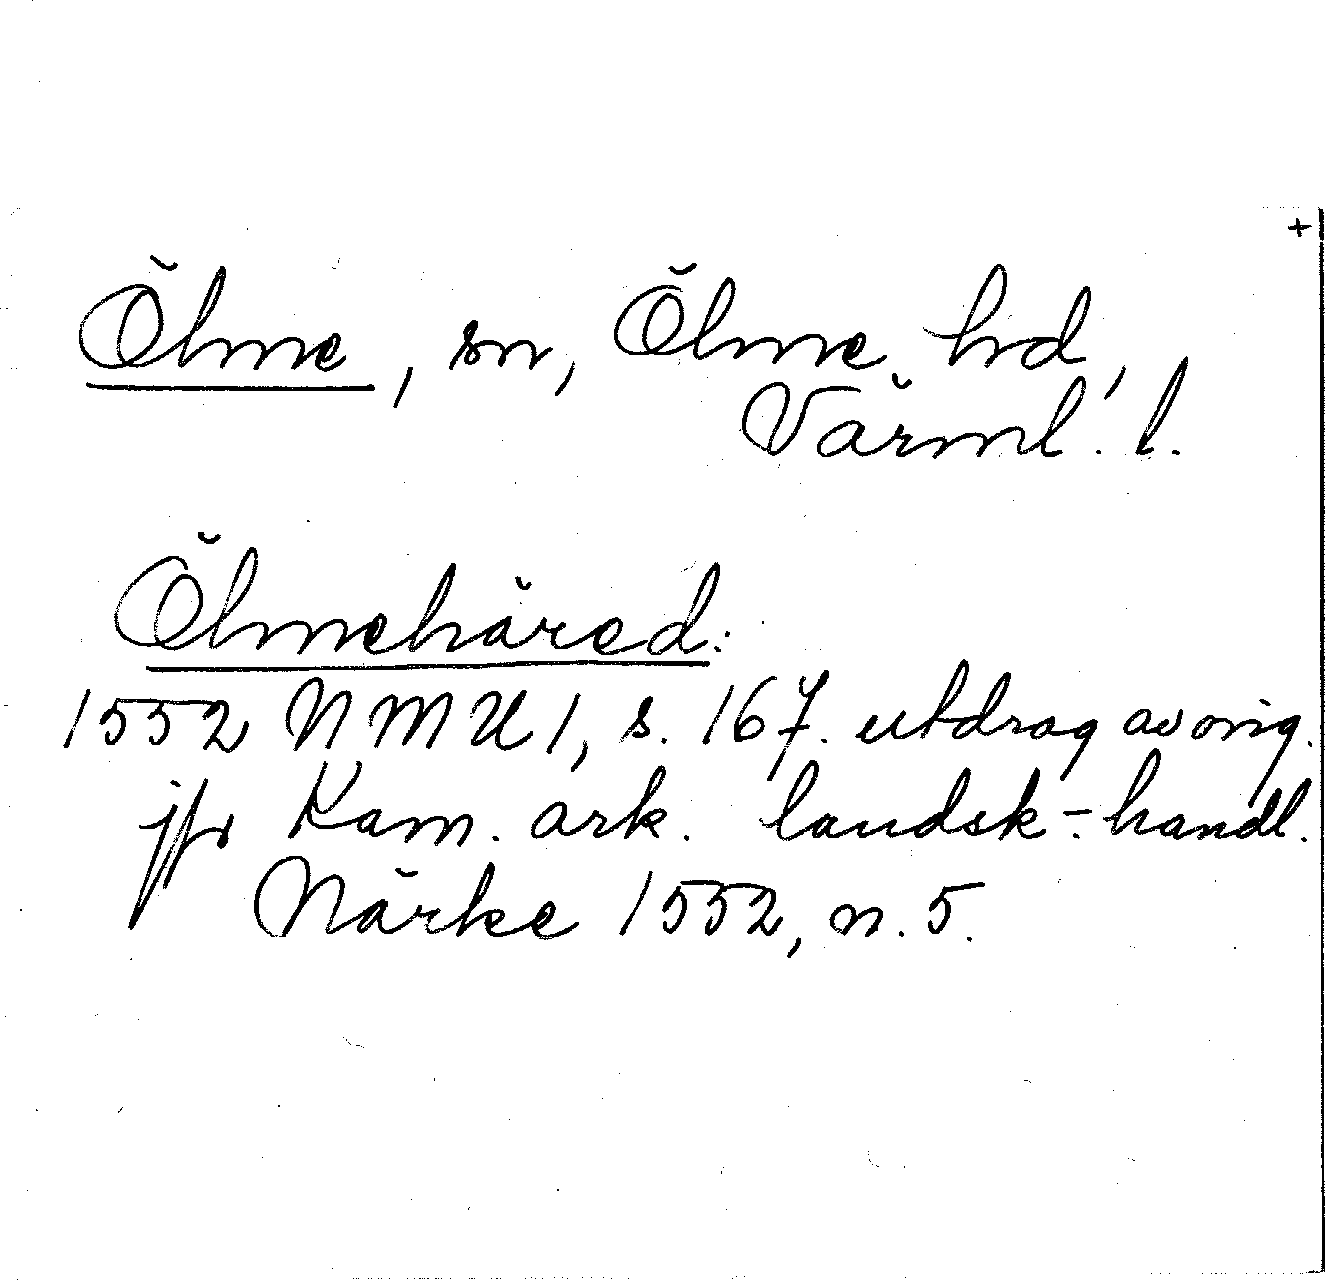 +
Ölme, sn, Ölme hd,
Värml. l.
Ölmehäred:
1552 NMU 1, s. 167. utdrag av orig.
jfr Kam. ark. landsk.-handl.
Närke 1552, n. 5.